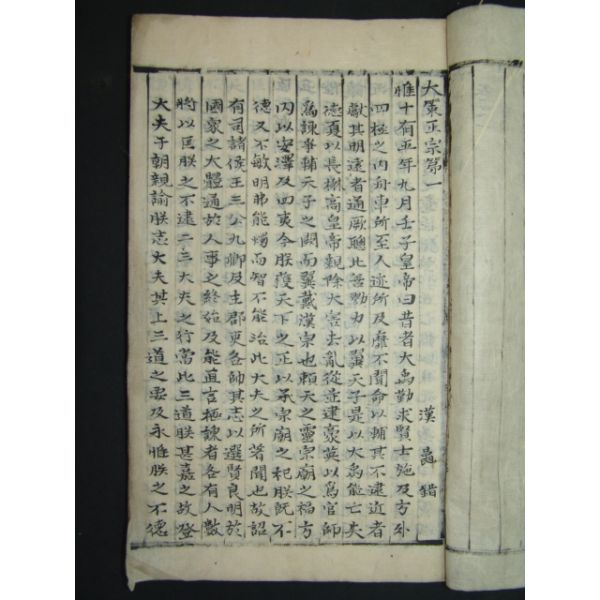 大策正宗第一 漢 鼂錯
惟十有五年九月壬子皇帝曰昔者大禹勤求賢士施及方外
四極之内舟車所至人迹所及靡不聞命以輔其不逮近者
獻其明遠者通厥聰比善勠力以翼天子是以大禹能亡失
德夏以長楙高皇帝親除大害去亂從並建豪英以爲官師
爲諫爭輔天子之闕而翼戴漢宗也賴天之靈宗廟之福方
内以安澤及四夷今朕獲天下之正以承宗廟之祀朕旣不
德又不敏明弗能燭而智不能治此大夫之所著聞也故詔
有司諸侯王三公九卿及主郡吏各帥其志以選賢良明於
國家之大體通於人事之終始及能直言極諫者各有人數
將以匡朕之不逮二三大夫之行當此三道朕甚嘉之故登
大夫于朝親諭朕志大夫其上三道之要及永惟朕之不德